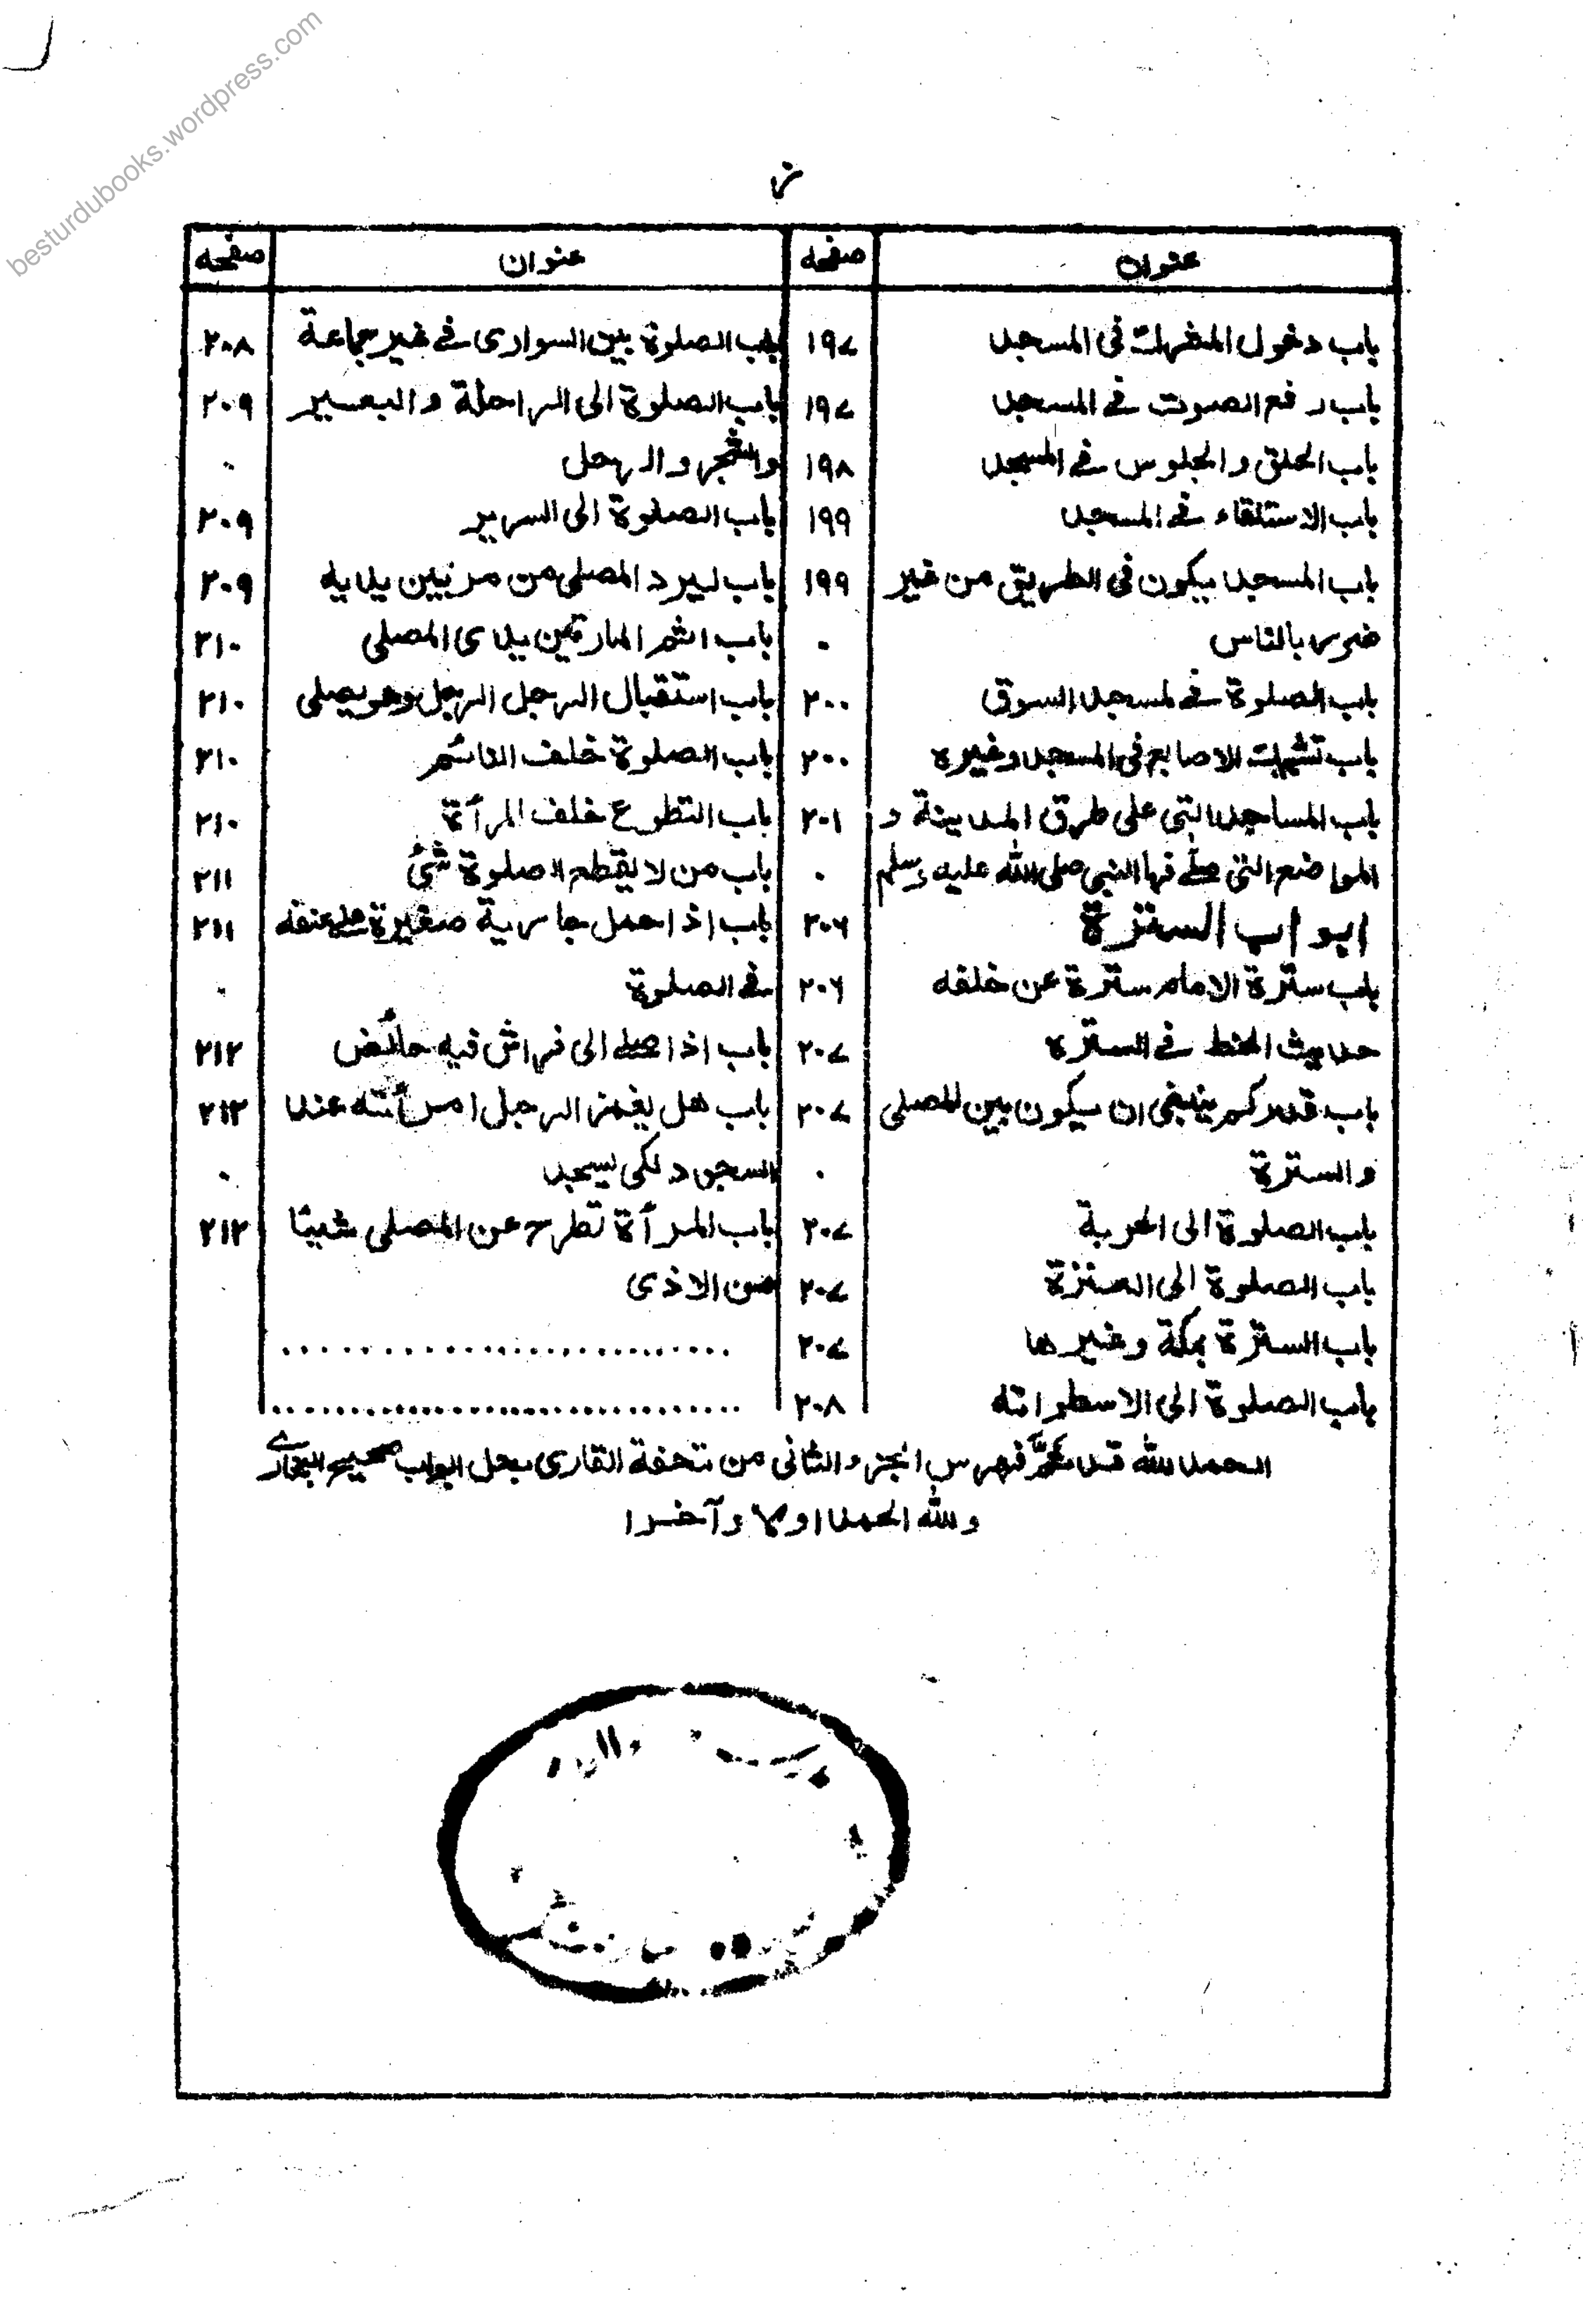 besturdubooks.wordpress.com
ز
عنوان صفحه عنوان صفحه
باب دخول المشرك فى المسجد ۱۹۷
باب رفع الصوت فى المسجد ۱۹۷
باب الحلق والجلوس فى المسجد ۱۹۸
باب الاستلقاء فى المسجد ۱۹۹
باب المسجد يكون فى الطريق من غير ۱۹۹
ضرر بالناس ۰
باب الصلوة فى مسجد السوق ۲۰۰
باب تشبيك الاصابع فى المسجد وغيره ۲۰۰
باب المساجد التى على طرق المدينة و ۲۰۱
المواضع التى صلى فيها النبى صلى الله عليه وسلم ۰
ابواب السترة ۲۰۶
باب سترة الامام سترة عن خلفه ۲۰۶
حديث الخط فى السترة ۲۰۷
باب قدر كم ينبغى ان يكون بين المصلى ۲۰۷
والسترة ۰
باب الصلوة الى الحربة ۲۰۷
باب الصلوة الى العنزة ۲۰۷
باب السترة بمكة وغيرها ۲۰۷
باب الصلوة الى الاسطوانة ۲۰۸
باب الصلوة بين السوارى فى غير جماعة ۲۰۸
باب الصلوة الى الراحلة والبعير ۲۰۹
والشجر والرحل ۰
باب الصلوة الى السرير ۲۰۹
باب ليرد المصلى من مر بين يديه ۲۰۹
باب اثم المار بين يدى المصلى ۲۱۰
باب استقبال الرجل الرجل وهو يصلى ۲۱۰
باب الصلوة خلف النائم ۲۱۰
باب التطوع خلف المرأة ۲۱۰
باب من لا يقطع الصلوة شئ ۲۱۱
باب اذا حمل جارية صغيرة على عنقه ۲۱۱
فى الصلوة ۰
باب اذا صلى الى فراش فيه حائض ۲۱۲
باب هل يغمز الرجل امرأته عند ۲۱۲
السجود لكى يسجد ۰
باب المرأة تطرح عن المصلى شيئا ۲۱۲
من الاذى
الحمد لله قد تم فهرس الجزء الثانى من تحفة القارى بحل ابواب صحيح البخارى
ولله الحمد اولا وآخرا